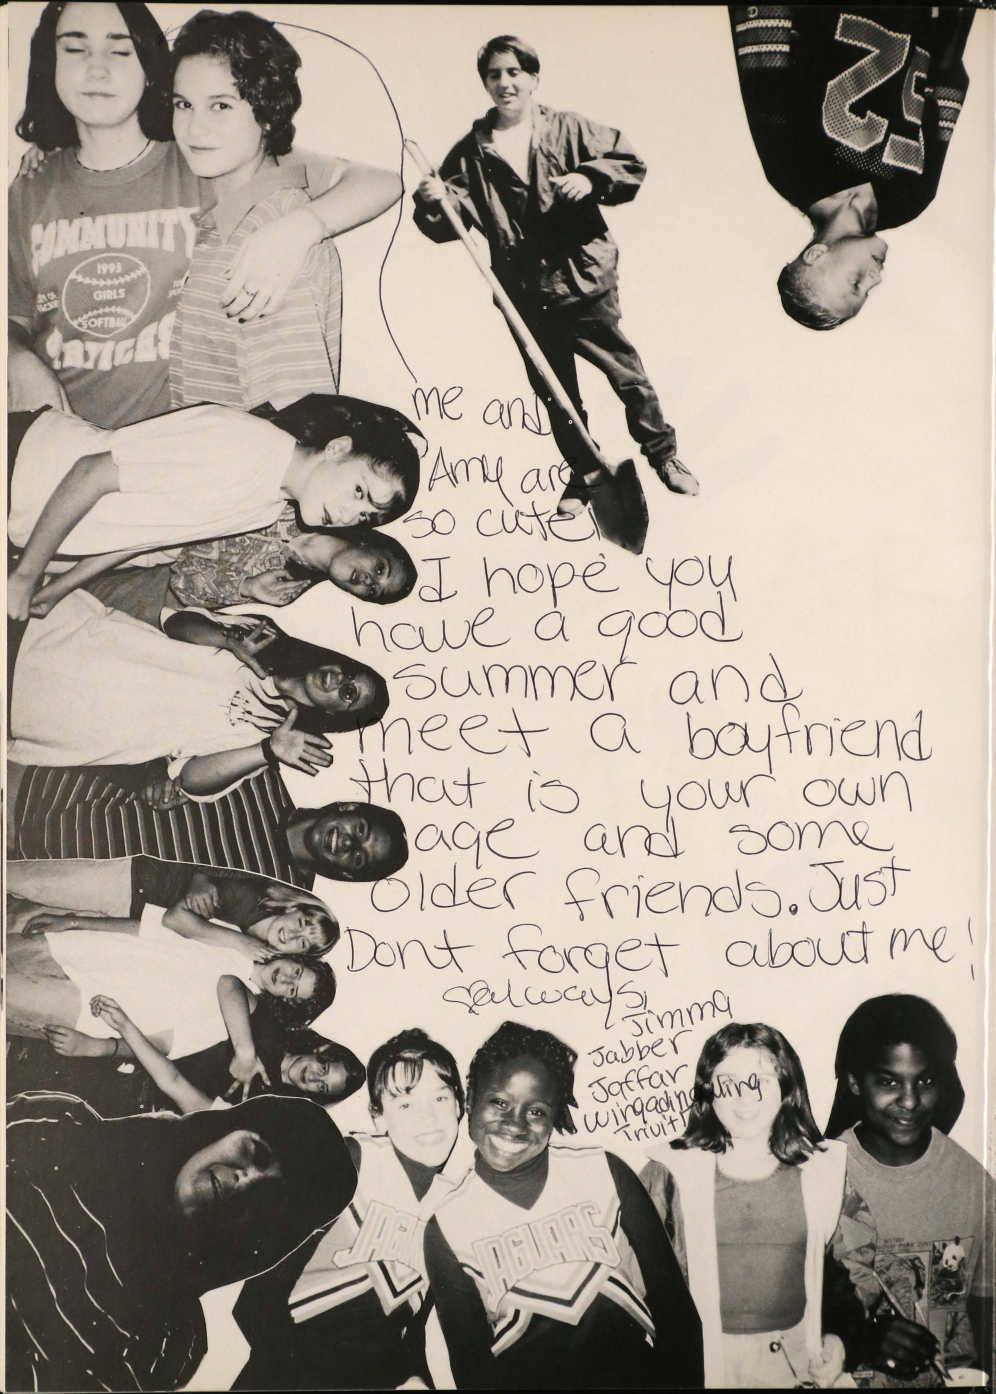 COMMUNITY
1993
GIRLS
SOFTBALL
SERVICES
25
me and
Amy are
so cute!
I hope you
have a good
summer and
meet a boyfriend
that is your own
age and some
older friends. Just
Dont forget about me!
always,
Jimma
Jabber
Jaffar
wingading
ding
JAG
JAGUARS